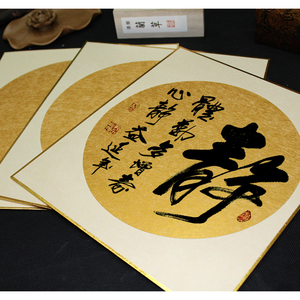 靜
體動多增壽
心靜益延年